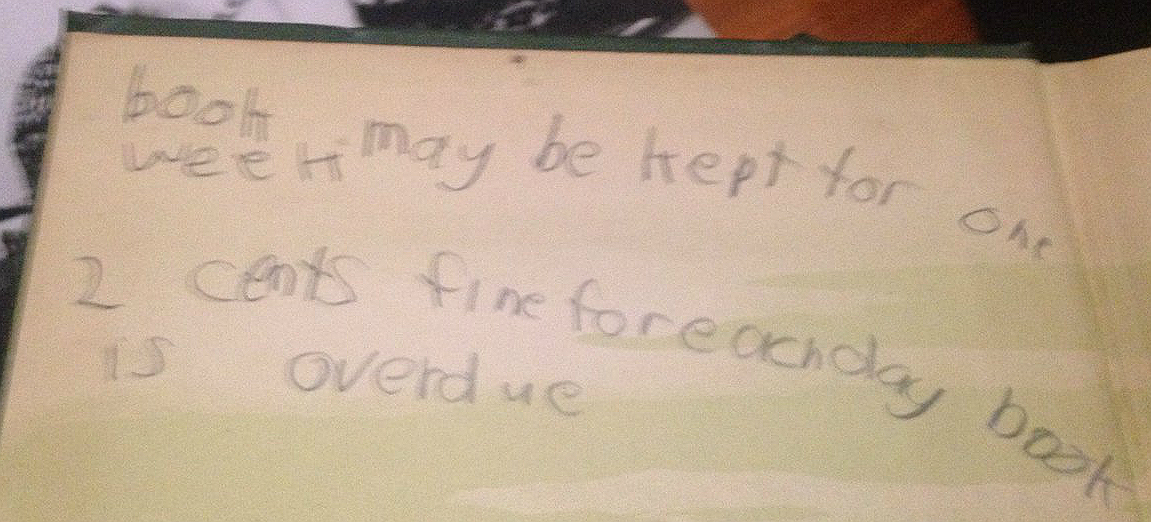 book may be kept for one
week
2 cents fine for each day book
is overdue